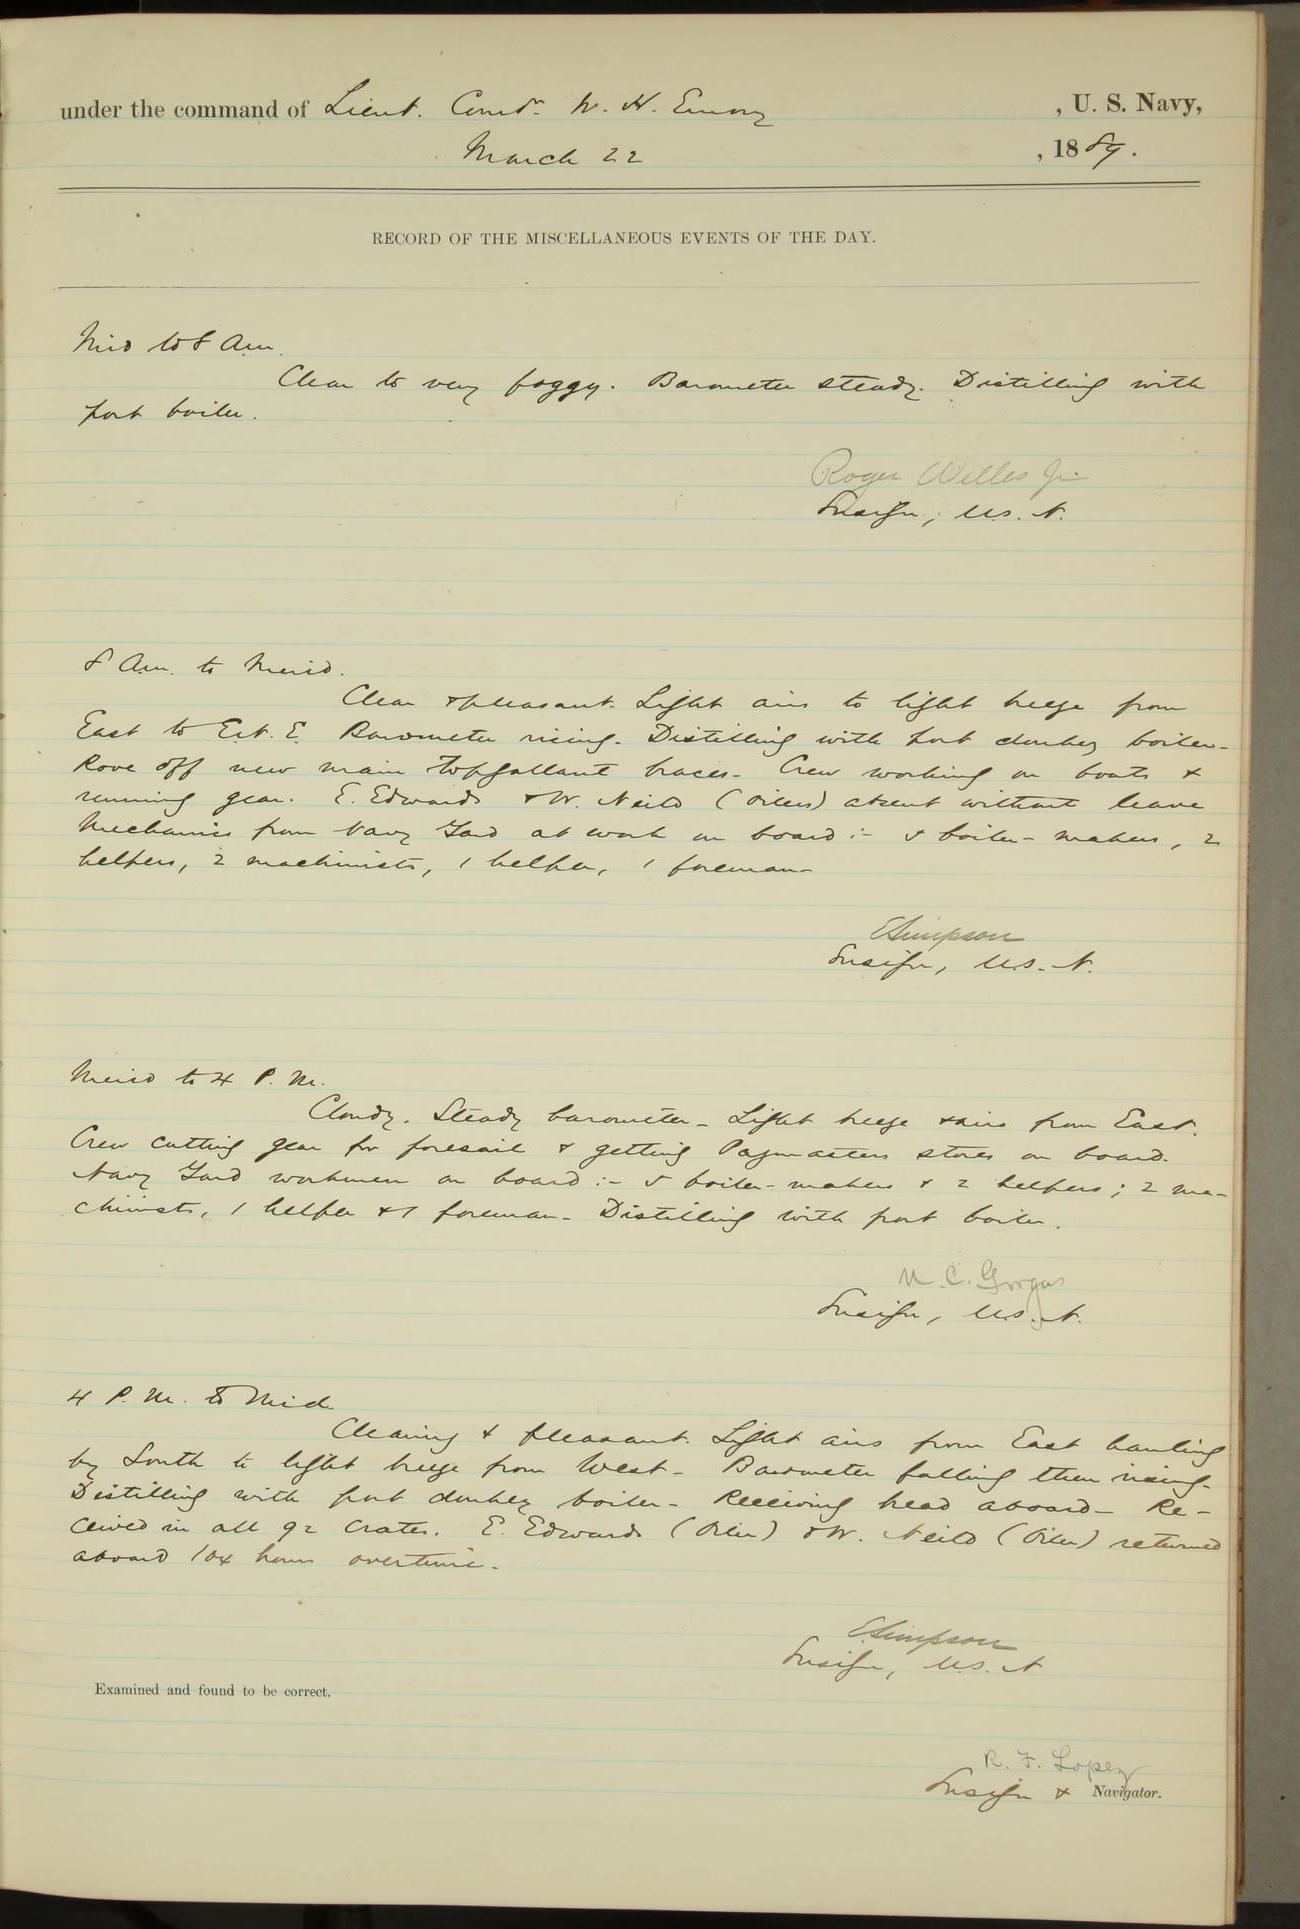 under the command of Lieut. Comdr. W. H. Emory , U. S. Navy,
March 22 , 1889.
RECORD OF THE MISCELLANEOUS EVENTS OF THE DAY.
Mid to 8 Am.
Clear to very foggy. Barometer steady. Distilling with
port boiler.
Roger Welles Jr.
Ensign, U.S.N.
8 Am. to Merid.
Clear & pleasant. Light airs to light breeze from
East to E.N.E. Barometer rising. Distilling with port donkey boiler.
Rove off new main topgallant braces. Crew working on boats &
running gear. E. Edwards & W. Neild (oilers) absent without leave
Mechanics from Navy Yard at work on board:- 5 boiler-makers, 2
helpers, 2 machinists, 1 helper, 1 foreman.
E Simpson
Ensign, U.S.N.
Merid to 4 P.M.
Cloudy. Steady barometer. Light breeze & airs from East.
Crew cutting gear for foresail & getting Paymasters stores on board.
Navy Yard workmen on board:- 5 boiler-makers & 2 helpers; 2 ma-
chinists, 1 helper & 1 foreman. Distilling with port boiler.
M. C. Gorgas
Ensign, U.S.N.
4 P.M. to Mid.
Clearing & pleasant. Light airs from East hauling
by South to light breeze from West. Barometer falling then rising.
Distilling with port donkey boiler. Receiving bread aboard. Re-
ceived in all 92 crates. E. Edwards (Oiler) & W. Neild (Oiler) returned
aboard 104 hours overtime.
E. Simpson
Ensign, U.S.N
Examined and found to be correct.
R. F. Lopez
Ensign & Navigator.